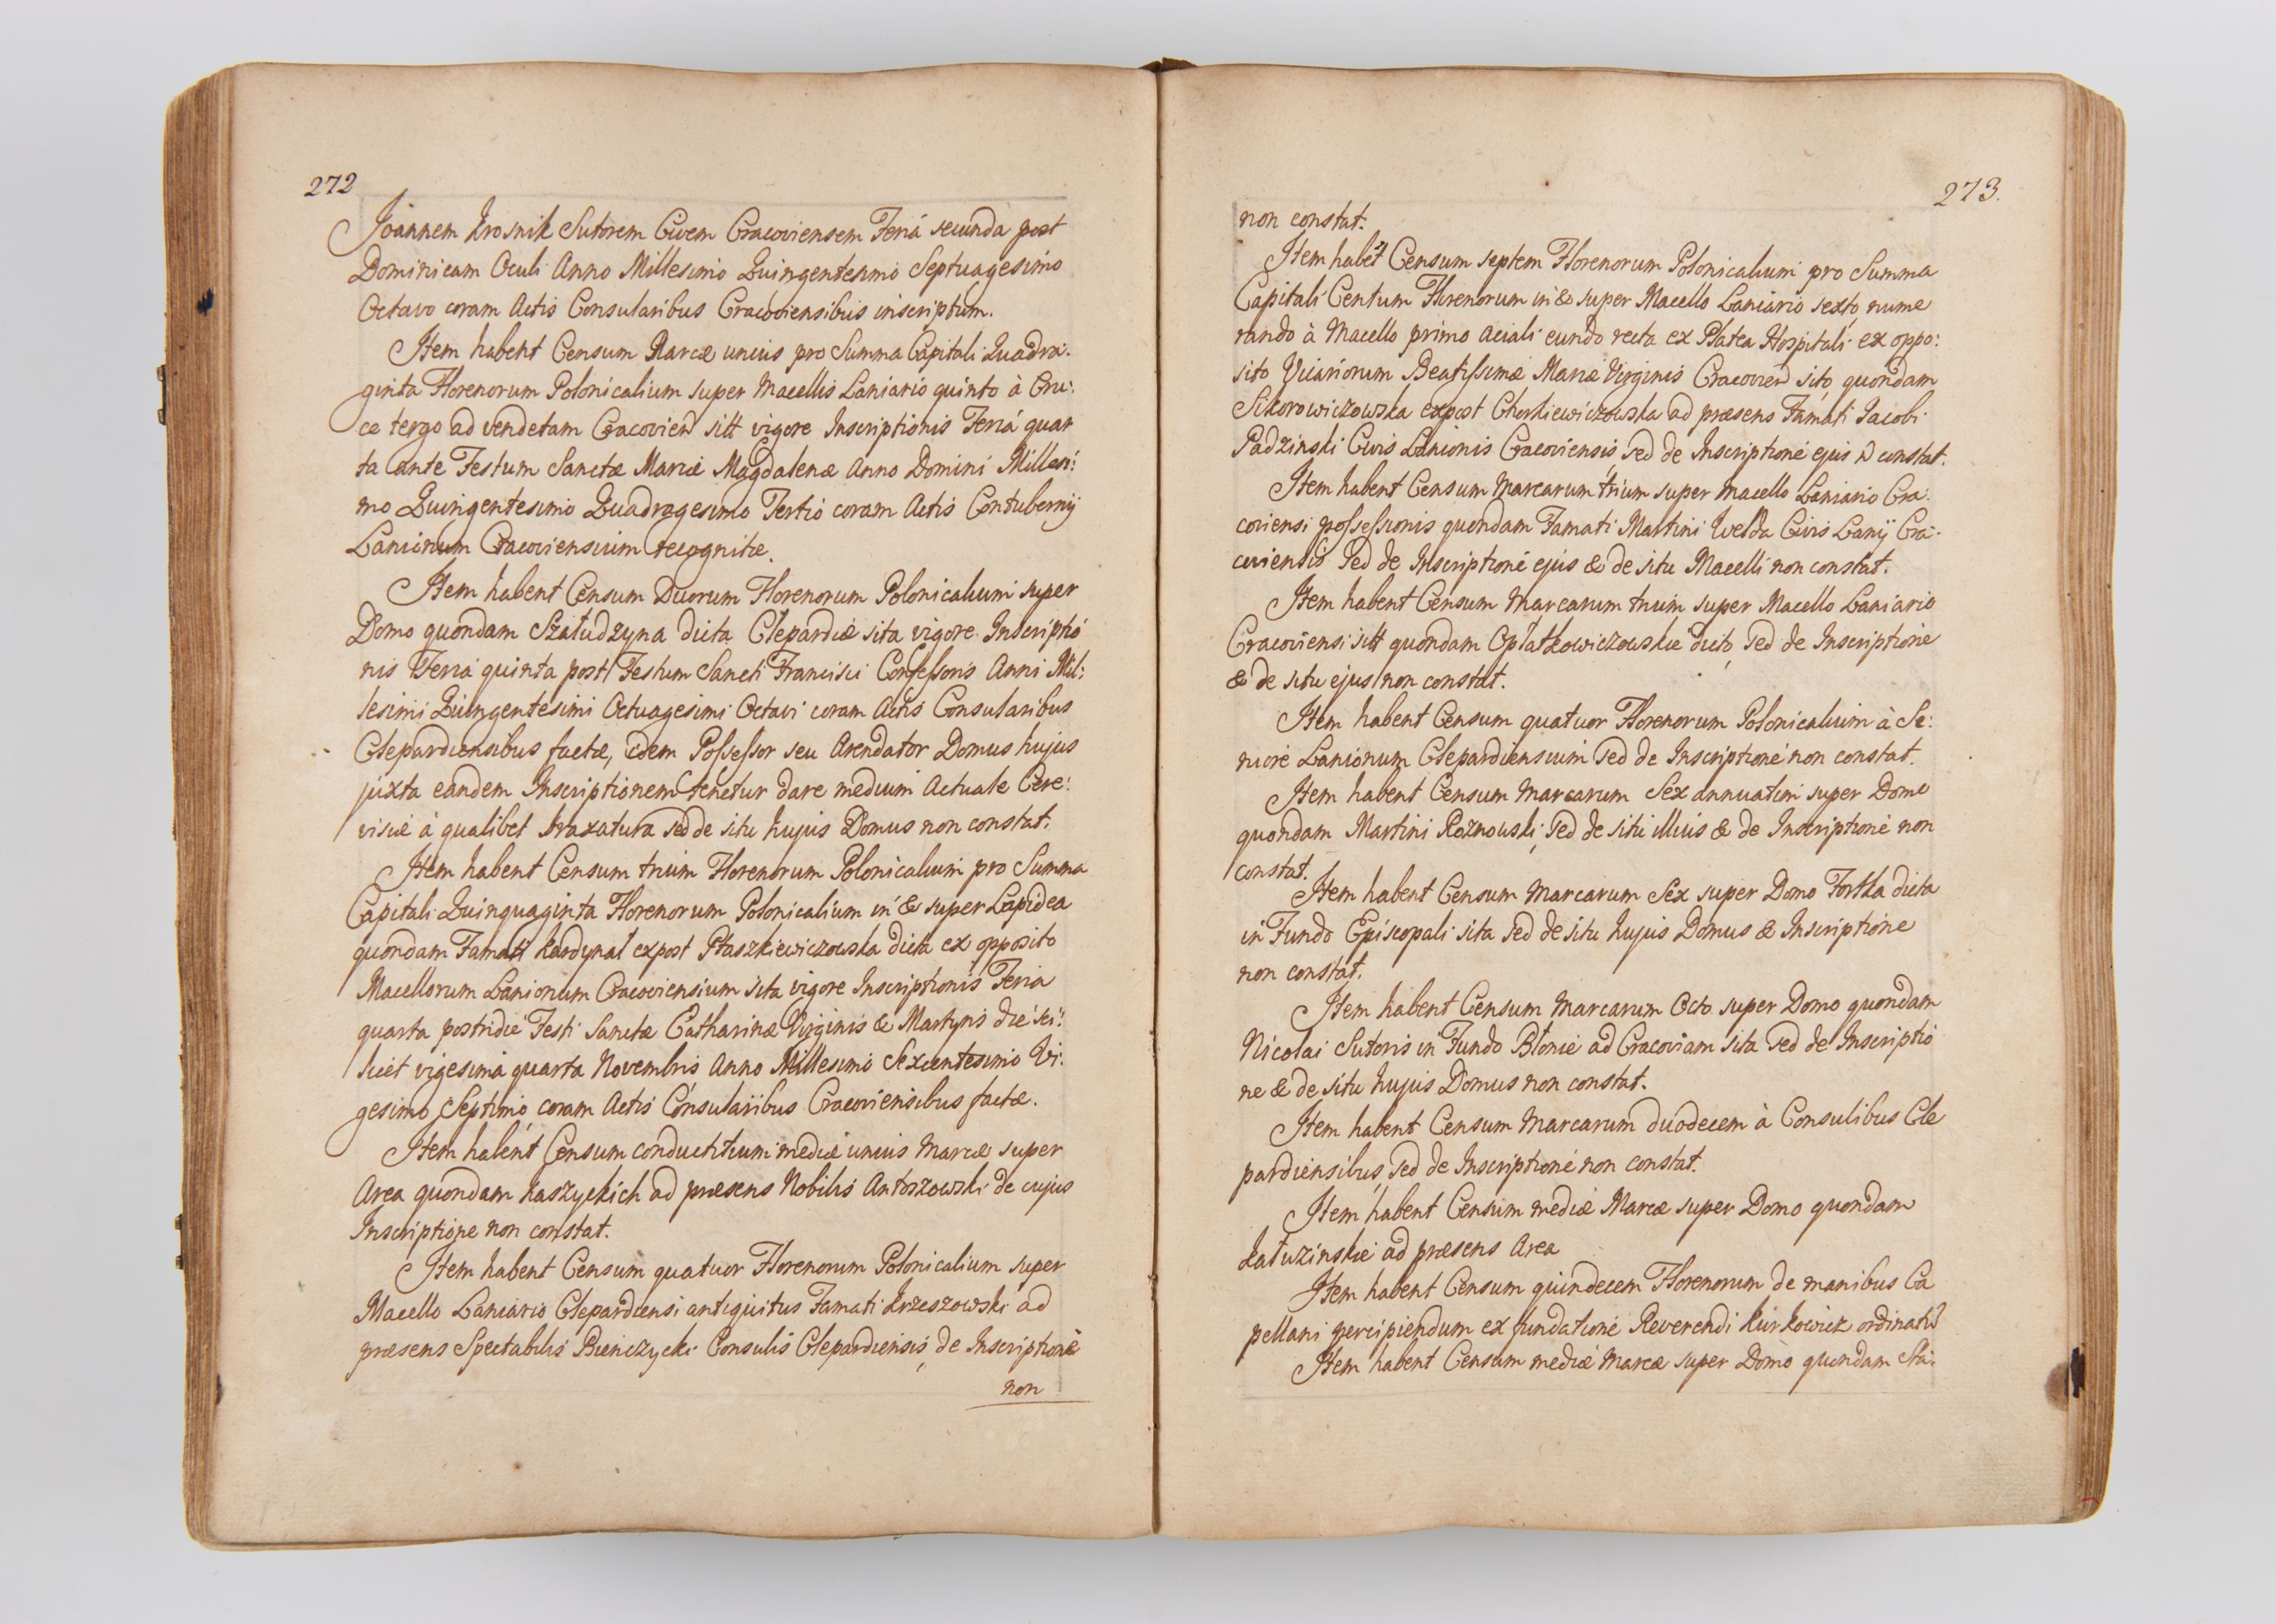 272
Joannem Krosnik Sutorem Civem Cracoviensem Feriá secunda post
Dominicam Oculi Anno Millesimo Quingentesimo Septuagesimo
Octavo coram Actis Consularibus Cracoviensibus inscriptum.
Item habent Censum Marcæ unius pro Summa Capitali Quadra:
ginta Florenorum Polonicalium super Macellis Laniario quinto à Cru:
ce tergo ad vendetam Cracovien sitt vigore Inscriptionis Feriá quar
ta ante Festum Sanctæ Mariæ Magdalenæ Anno Domini Millesi:
mo Quingentesimo Quadragesimo Tertio coram Actis Contubernij
Lanionum Cracoviensium recognitæ.
Item habent Censum Duorum Florenorum Polonicalium super
Domo quondam Szałudzyna dicta Clepardiæ sita vigore Inscriptio
nis Feriá quinta post Festum Sancti Francisci Confessoris Anni Mil:
lesimi Quingentesimi Octuagesimi Octavi coram Actis Consularibus
Clepardiensibus factæ, idem Possessor seu Arendator Domus hujus
juxta eandem Inscriptionem tenetur dare medium Actuale Cere:
visiæ à qualibet braxatura sed de situ hujus Domus non constat.
Item habent Censum trium Florenorum Polonicalium pro Summa
Capitali Quinquaginta Florenorum Polonicalium in & super Lapidea
quondam Famati Kardynał expost Ptaszkiewiczowska dicta ex opposito
Macellorum Lanionum Cracoviensium sita vigore Inscriptionis Feria
quarta postridie Festi Sanctæ Catharinæ Virginis & Martyris die sci:
licet vigesima quarta Novembris Anno Millesimo Sexcentesimo Vi:
gesimo Septimo coram Actis Consularibus Cracoviensibus factæ.
Item habent Censum conductitium mediæ unius Marcæ super
Area quondam Kaszyckich ad præsens Nobilis Antoszowski de cujus
Inscriptione non constat.
Item habent Censum quatuor Florenorum Polonicalium super
Macello Laniario Clepardiensi antiquitus Famati Krzeszowski ad
præsens Spectabilis Bienczycki Consulis Clepardiensis, de Inscriptione
non
273.
non constat.
Item habet Censum septem Florenorum Polonicalium pro Summa
Capitali Centum Florenorum in & super Macello Laniario sexto nume
rando à Macello primo aciali eundo recta ex Platea Hospitali ex oppo:
sito Vicariorum Beatissimæ Mariæ Virginis Cracovien sito, quondam
Sikorowiczowska expost Chorkiewiczowska ad præsens Famati Jacobi
Padzinski Civis Lanionis Cracoviensis, sed de Inscriptione ejus n constat.
Item habent Censum Marcarum trium super Macello Laniario Cra:
coviensi possessionis quondam Famati Martini Welda Civis Lanij Cra:
coviensis sed de Inscriptione ejus & de situ Macelli non constat.
Item habent Censum Marcarum trium super Macello Laniario
Cracoviensi sitt quondam Opłatkowiczowskie dicto, sed de Inscriptione
& de situ ejus non constat.
Item habent Censum quatuor Florenorum Polonicalium à Se:
niore Lanionum Clepardiensium sed de Inscriptione non constat.
Item habent Censum Marcarum Sex annuatim super Domo
quondam Martini Roznowski, sed de situ illius & de Inscriptione non
constat.
Item habent Censum Marcarum Sex super Domo Fortka dicta
in Fundo Episcopali sita sed de situ hujus Domus & Inscriptione
non constat.
Item habent Censum Marcarum Octo super Domo quondam
Nicolai Sutoris in Fundo Błonie ad Cracoviam sita sed de Inscriptio
ne & de situ hujus Domus non constat.
Item habent Censum Marcarum duodecem à Consulibus Cle
pardiensibus, sed de Inscriptione non constat.
Item habent Censum mediæ Marcæ super Domo quondam
Kałuzinskie ad præsens Area
Item habent Censum quindecem Florenorum de manibus Ca
pellani percipiendum ex fundatione Reverendi Kurkowicz
Item habent Censum mediæ Marcæ super Domo quondam Sta: